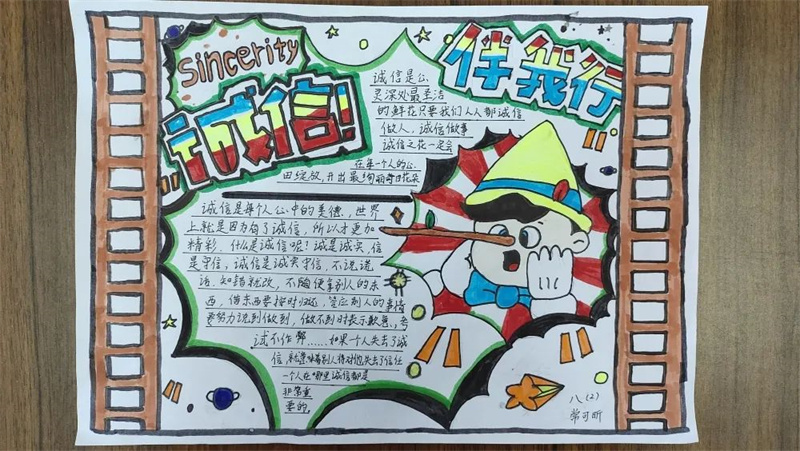 Sincerity
诚信!
伴我行
诚信是心
灵深处最圣洁
的鲜花只要我们人人都诚信
做人，诚信做事
诚信之花一定会
在每一个人的心
田绽放，开出最绚丽的花朵
诚信是每个人心中的美德，世界
上就是因为有了诚信，所以才更加
精彩。什么是诚信呢？诚是诚实，信
是守信，诚信是诚实守信，不说谎
话，知错就改，不随便拿别人的东
西，借东西要按时归还，答应别人的事情
要努力说到做到，做不到时表示歉意，考
试不作弊……如果一个人失去了诚
信，就意味着别人将对他失去了信任
一个人在哪里诚信都是
非常重
要的。
八（2）
常可昕